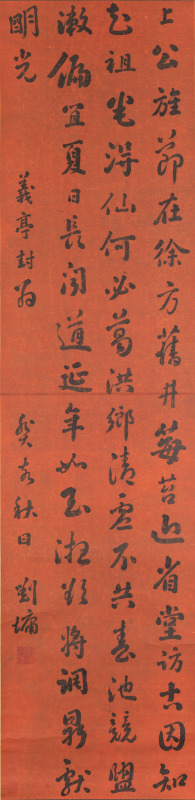 上公旌節在徐方舊井莓苔近省堂訪古因知
彭祖宅得仙何必葛洪鄉清虛不共春池競盥
漱偏宜夏日長聞道延年如玉液欲將調鼎獻
明光 義亭封翁 癸亥秋日 劉墉